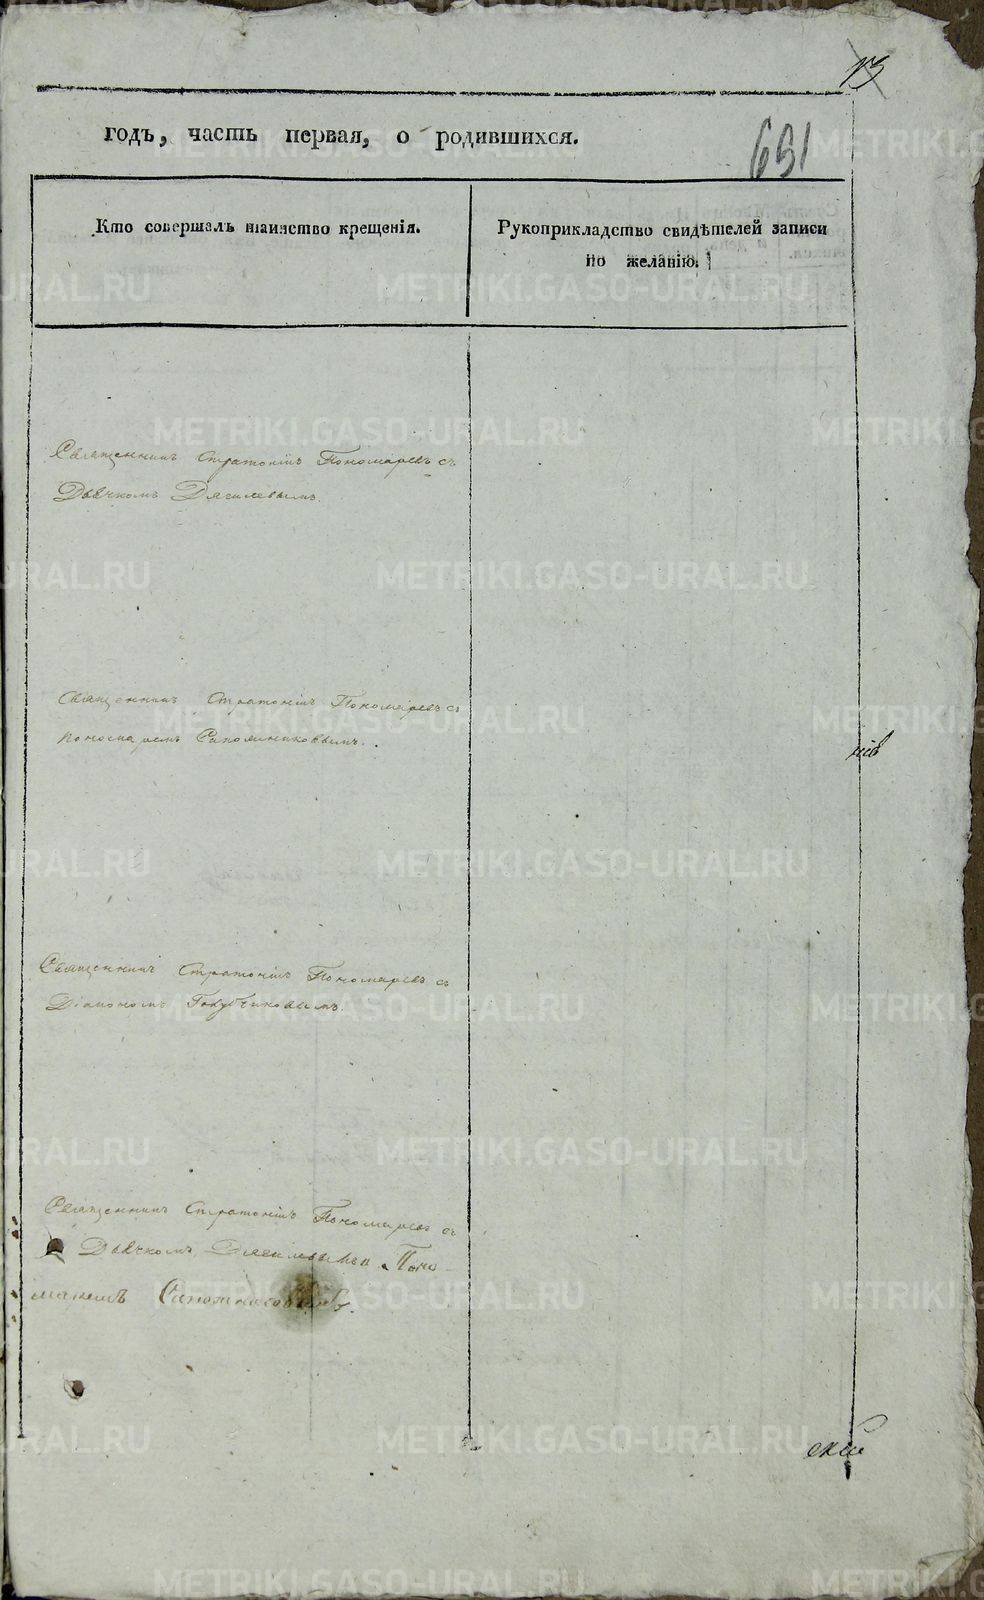 13
годъ, часть первая, о родившихся.
691
Кто совершалъ таинство крещенія.
Рукоприкладство свидѣтелей записи
по желанію.
Священникъ Стратоникъ Пономаревъ съ
Дьячкомъ Дягилевымъ.
Священникъ Стратоникъ Пономаревъ съ
Пономаремъ Сапожниковымъ.
Священникъ Стратоникъ Пономаревъ съ
Діакономъ Голубчиковымъ.
Священникъ Стратоникъ Пономаревъ съ
Дьячкомъ Дягилевымъ и Поно-
маремъ Сапожниковымъ.
скій
METRIKI.GASO-URAL.RU